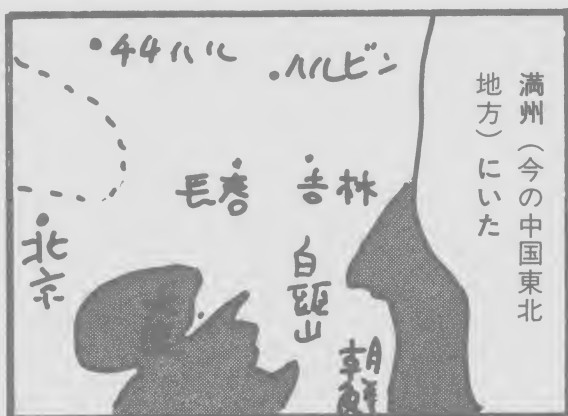 満州（今の中国東北
地方）にいた
チチハル
ハルビン
長春
吉林
北京
白頭山
朝鮮